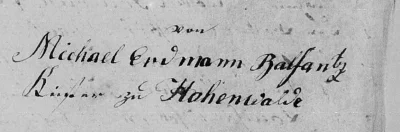 von
Michael Erdmann Balsantz
Küster zu Hohenwalde